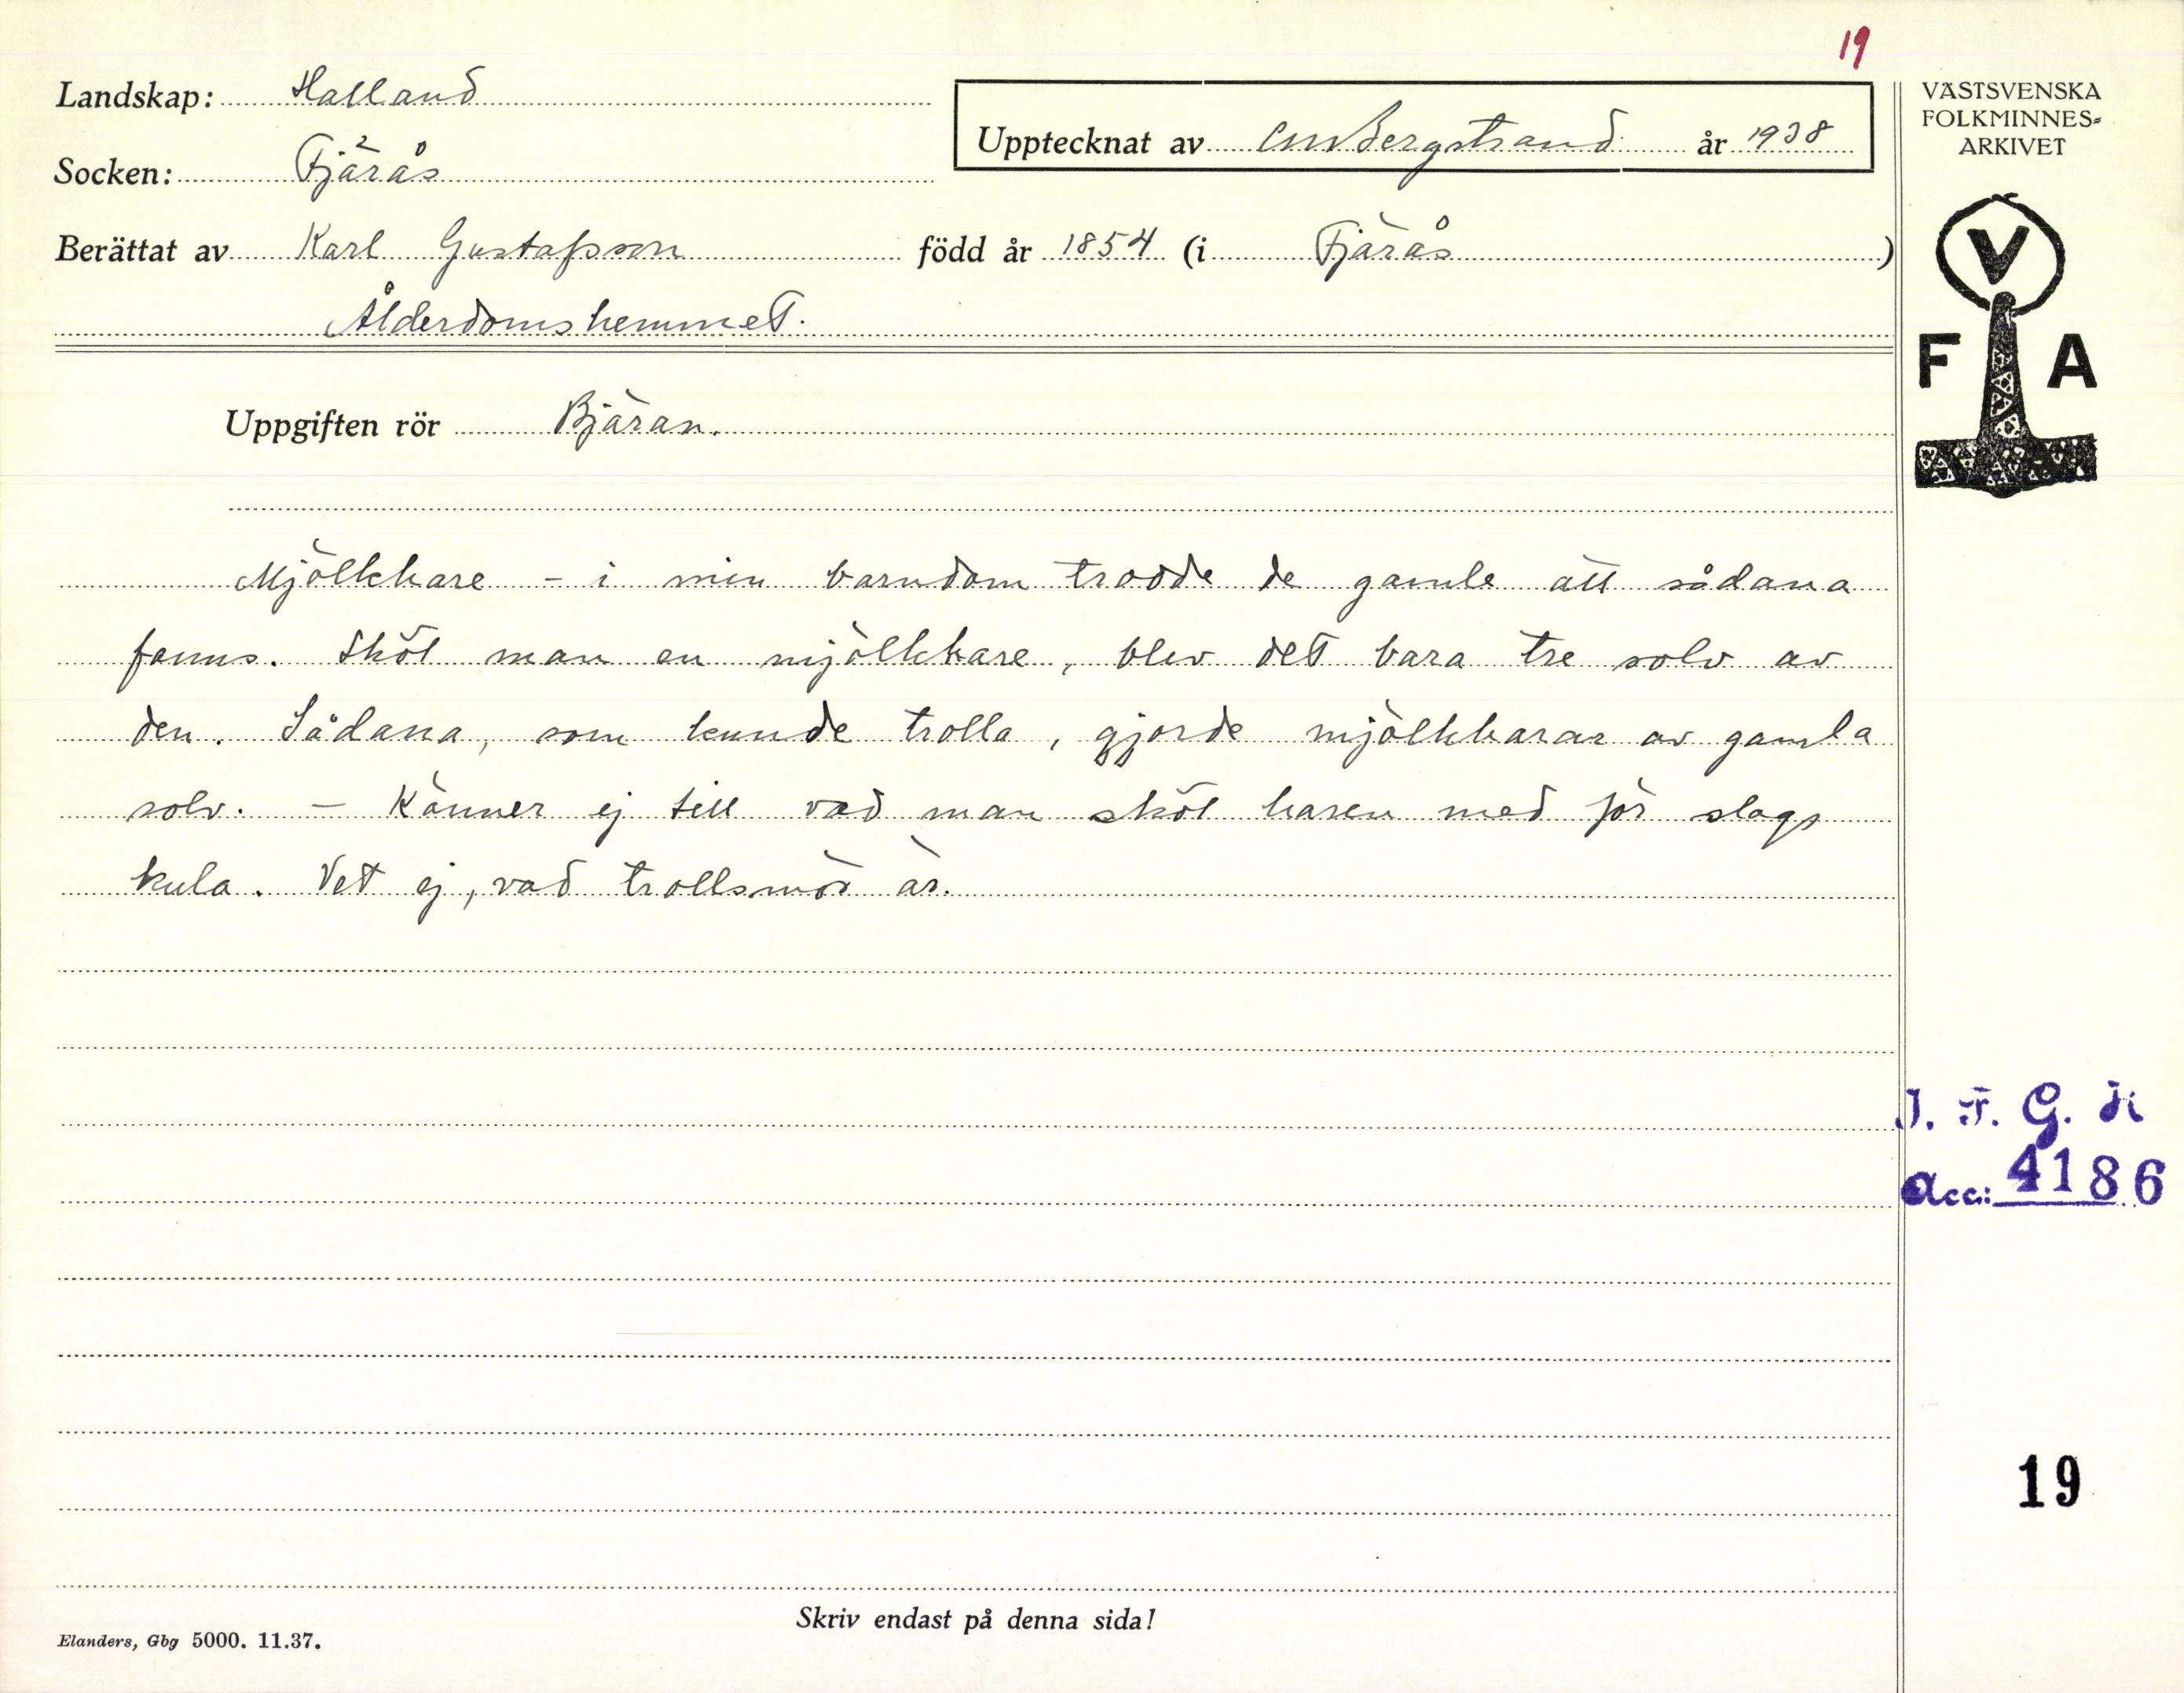 19
Landskap: Halland
Upptecknat av CM Bergstrand år 1938
Socken: Fjärås
Berättat av Karl Gustafsson född år 1854 (i Fjärås)
Ålderdomshemmet.
VÄSTSVENSKA
FOLKMINNES-
ARKIVET
V
F A
Uppgiften rör Bjäran.
Mjölkhare - i min barndom trodde de gamle att sådana
fanns. Sköt man en mjölkhare, blev det bara tre solv av
den. Sådana, som kunde trolla, gjorde mjölkharar av gamla
solv. - Känner ej till vad man sköt haren med för slags
kula. Vet ej, vad trollsmör är.
I. F. G. H
Acc: 4186
19
Skriv endast på denna sida!
Elanders, Gbg 5000. 11.37.